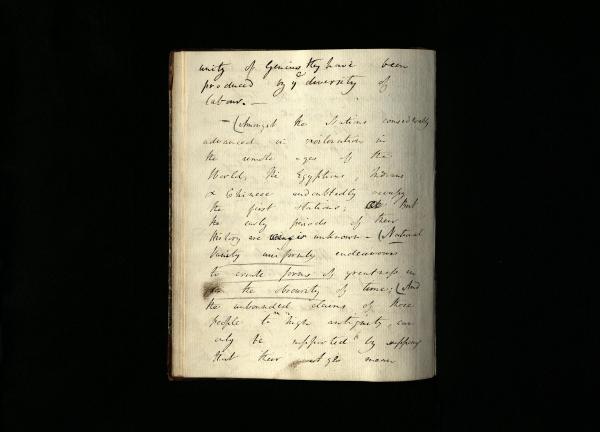 unity of Genius they have been
produced by ye diversity of
labour. —
— (Amongst the Nations considerably
advanced in civilization in
the remote ages of the
World, the Egyptians, Indians
& Chinese undoubtedly occupy
the first stations; But
the early periods of their
History are unknown — (National
Vanity uniformly endeavours
to create forms of greatness in
the obscurity of time; (And
the unbounded claims of those
People to "high antiquity, can
only be supported" by supposing
that their